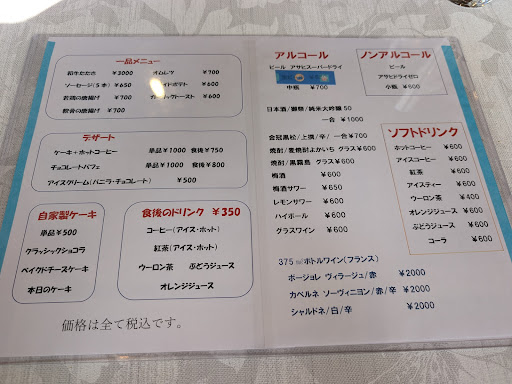 一品メニュー
和牛たたき ¥3000 オムレツ ¥700
ソーセージ(5本) ¥650 ポテト ¥600
若鶏の唐揚げ ¥700 ガーリックトースト ¥600
軟骨の唐揚げ ¥600
デザート
ケーキ+ホットコーヒー 単品¥1000 食後¥750
チョコレートパフェ 単品¥1000 食後¥800
アイスクリーム(バニラ・チョコレート) ¥500
自家製ケーキ
単品¥500
クラッシックショコラ
ベイクドチーズケーキ
本日のケーキ
食後のドリンク ¥350
コーヒー(アイス・ホット)
紅茶(アイス・ホット)
ウーロン茶 ぶどうジュース
オレンジジュース
価格は全て税込です。
アルコール
ビール アサヒスーパードライ
中瓶 ¥700
日本酒/獺祭/純米大吟醸 50
一合 ¥1000
會冠黒松/上撰/辛/ 一合¥700
焼酎/麦焼酎よかいち グラス¥600
焼酎/黒霧島 グラス¥600
梅酒 ¥600
梅酒サワー ¥650
レモンサワー ¥600
ハイボール ¥600
グラスワイン ¥600
375㎖ボトルワイン(フランス)
ボージョレ ヴィラージュ/赤 ¥2000
カベルネ ソーヴィニヨン/赤/辛 ¥2000
シャルドネ/白/辛 ¥2000
ノンアルコール
ビール
アサヒドライゼロ
小瓶 ¥600
ソフトドリンク
ホットコーヒー ¥600
アイスコーヒー ¥600
紅茶 ¥600
アイスティー ¥600
ウーロン茶 ¥400
オレンジジュース ¥600
ぶどうジュース ¥600
コーラ ¥600